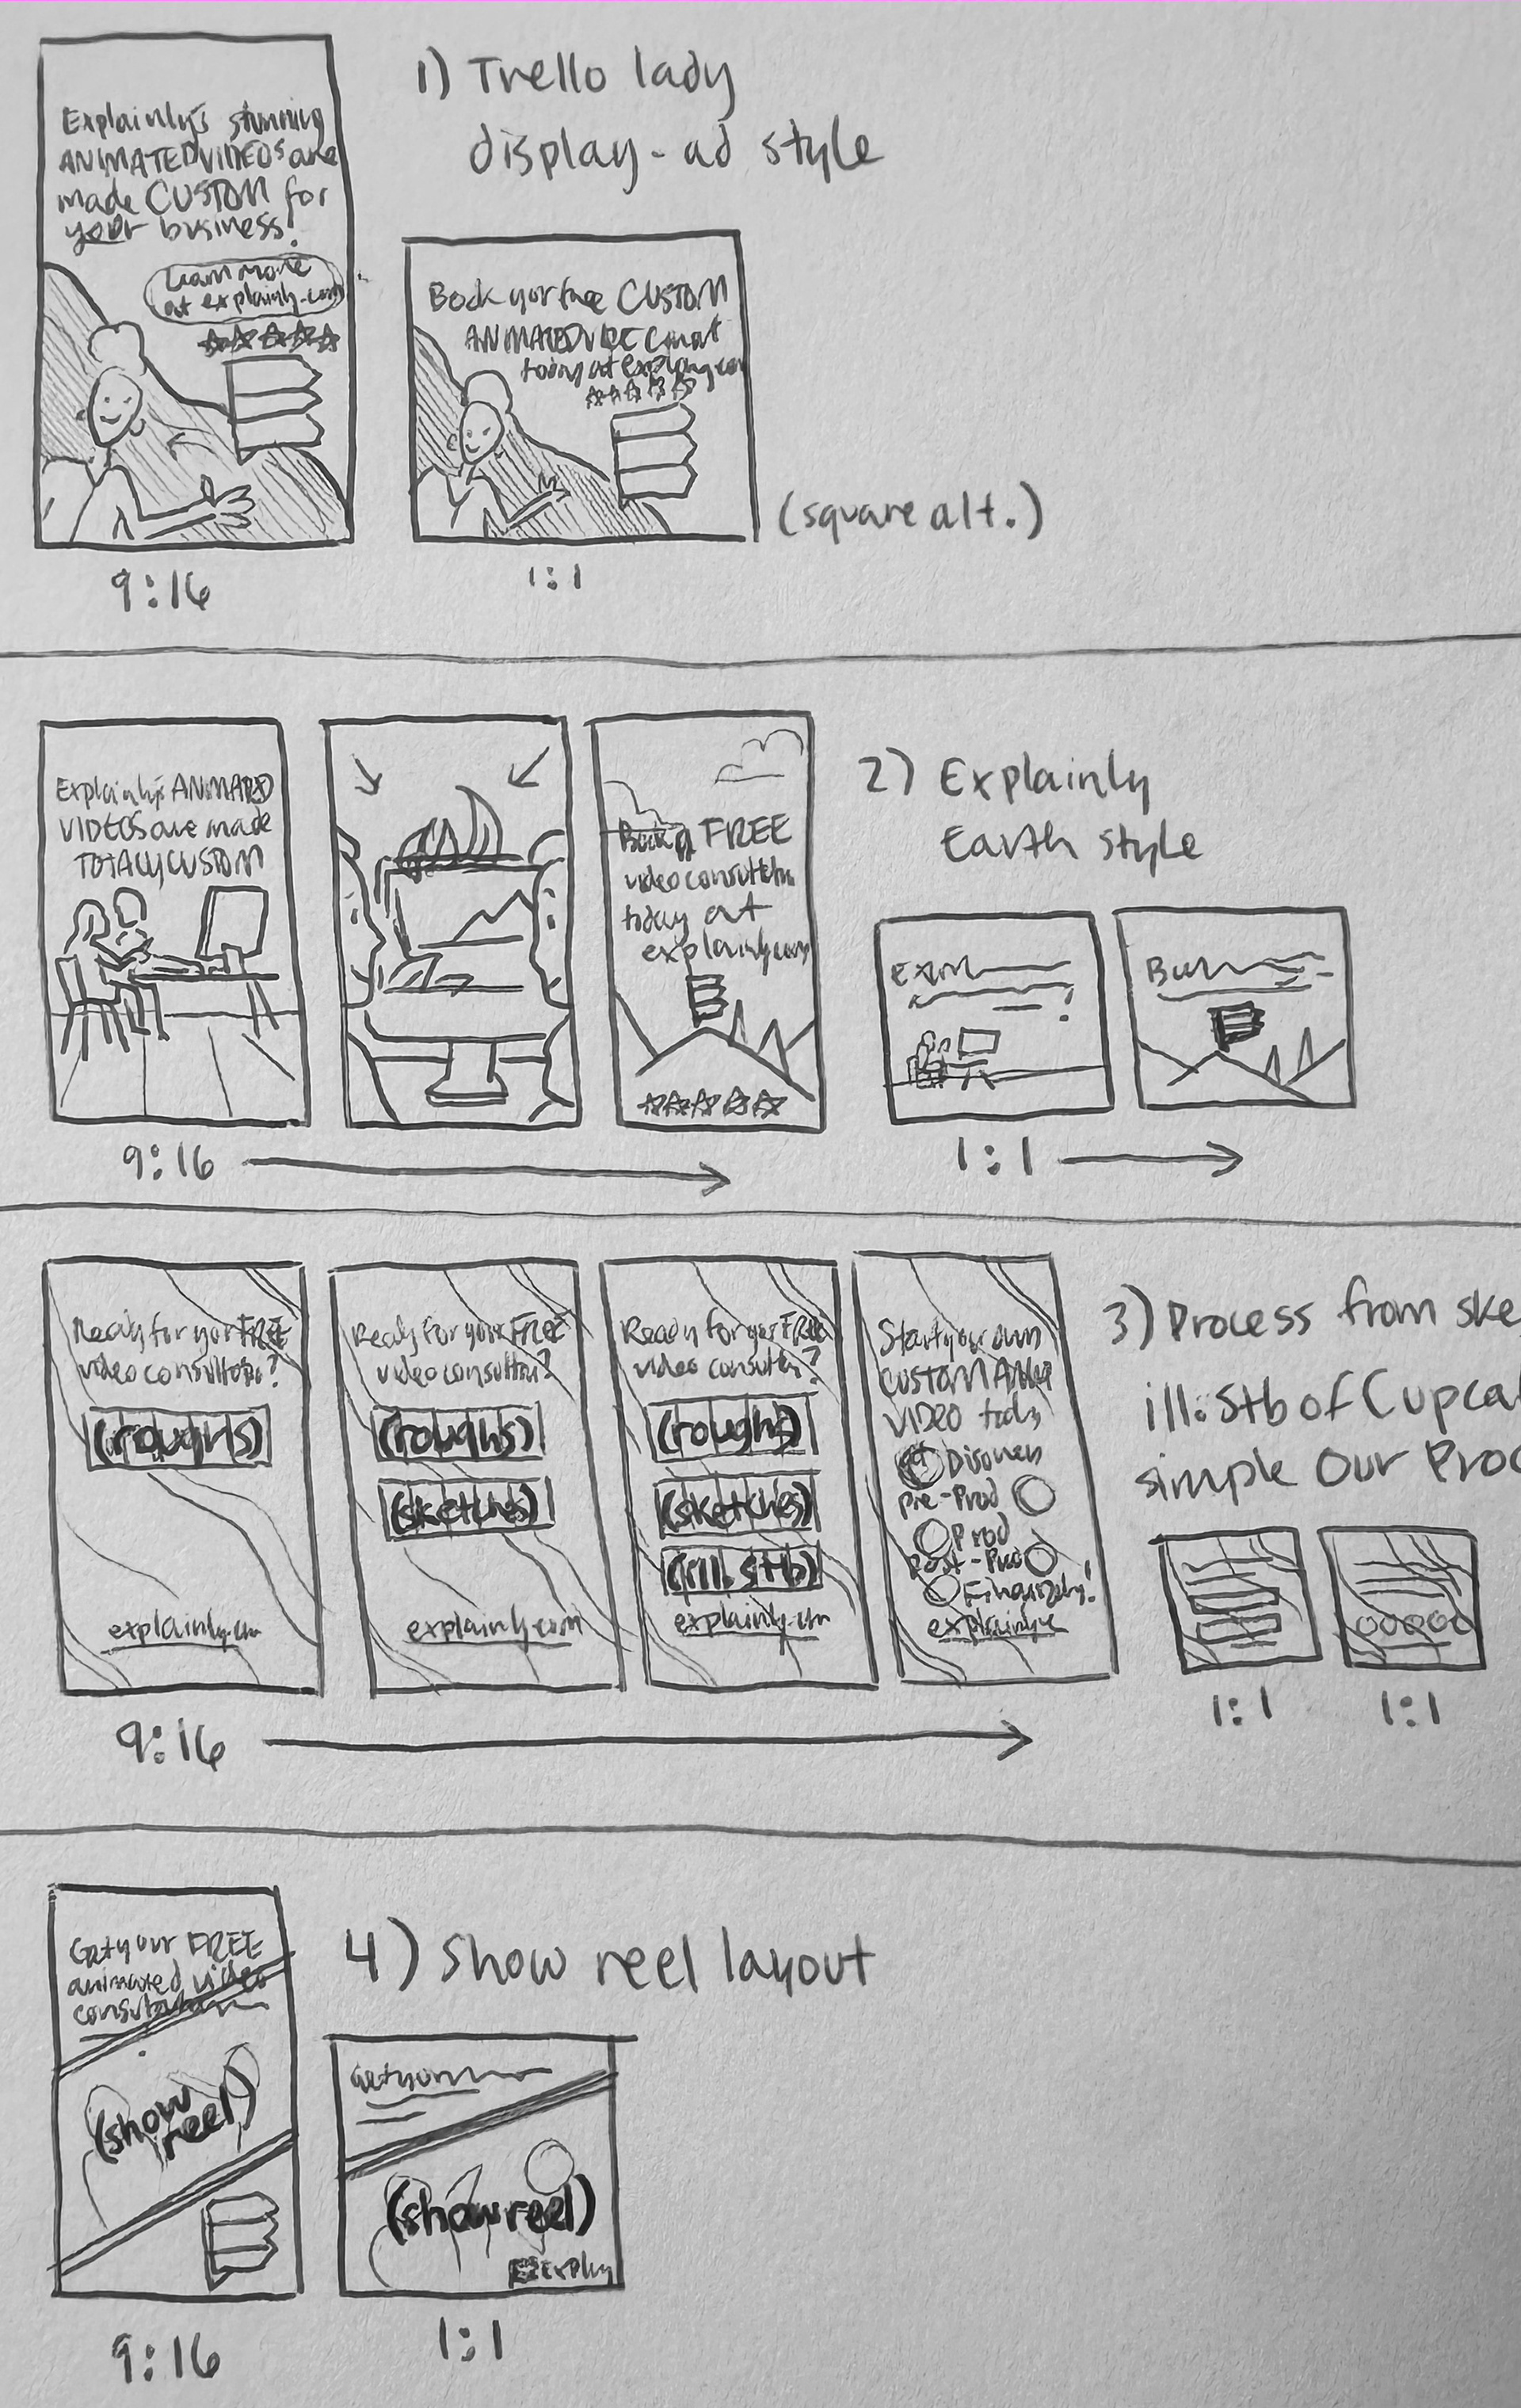 1) Trello lady
display-ad style
Explainly's stunning
ANIMATED VIDEOS are
made CUSTOM for
your business!
Learn more
at explainly.com
9:16
Book your free CUSTOM
ANIMATED
today at explainly.com
1:1
(square alt.)
2) Explainly
Earth style
Explainly's ANIMATED
VIDEOS are made
TOTALLY CUSTOM
Book a FREE
video
today at
explainly.com
9:16
1:1
3) Process from ske
ill. stb of Cupca
simple Our Proc
Ready for your FREE
video consultation?
(roughs)
explainly.com
Ready for your FREE
video consultation?
(roughs)
(sketches)
explainly.com
Ready for your FREE
video consultation?
(roughs)
(sketches)
(ill. stb)
explainly.com
Start your own
CUSTOM
VIDEO today
Discovery
Pre-Prod
Prod
Post-Prod
9:16
1:1
1:1
4) Show reel layout
Get your FREE
animated video
consultation
(show
reel)
9:16
Get your
(show reel)
1:1